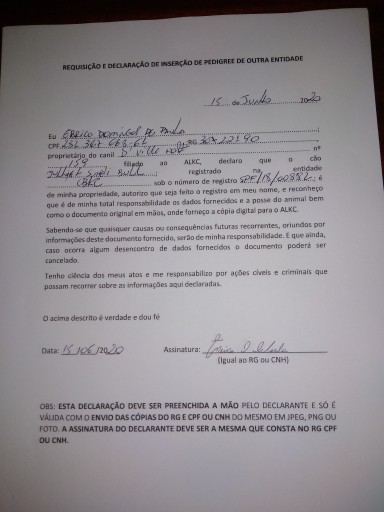 REQUISIÇÃO E DECLARAÇÃO DE INSERÇÃO DE PEDIGREE DE OUTRA ENTIDADE
15 de Junho 2020
Eu
CPF RG
proprietário do canil D' Ville nº
159 filiado ao ALKC, declaro que o cão
registrado na entidade
CBKC sob o número de registro é
de minha propriedade, autorizo que seja feito o registro em meu nome, e reconheço
que é de minha total responsabilidade os dados fornecidos e a posse do animal bem
como o documento original em mãos, onde forneço a cópia digital para o ALKC.
Sabendo-se que quaisquer causas ou consequências futuras recorrentes, oriundos por
informações deste documento fornecido, serão de minha responsabilidade. E que ainda,
caso ocorra algum desencontro de dados fornecidos o documento poderá ser
cancelado.
Tenho ciência dos meus atos e me responsabilizo por ações cíveis e criminais que
possam recorrer sobre as informações aqui declaradas.
O acima descrito é verdade e dou fé
Data: 15/06/2020 Assinatura:
(Igual ao RG ou CNH)
OBS: ESTA DECLARAÇÃO DEVE SER PREENCHIDA A MÃO PELO DECLARANTE E SÓ É
VÁLIDA COM O ENVIO DAS CÓPIAS DO RG E CPF OU CNH DO MESMO EM JPEG, PNG OU
FOTO. A ASSINATURA DO DECLARANTE DEVE SER A MESMA QUE CONSTA NO RG CPF
OU CNH.